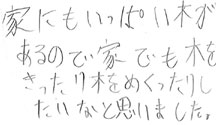 家にもいっぱい木が
あるので家でも木を
きったり木をめくったりし
たいなと思いました。